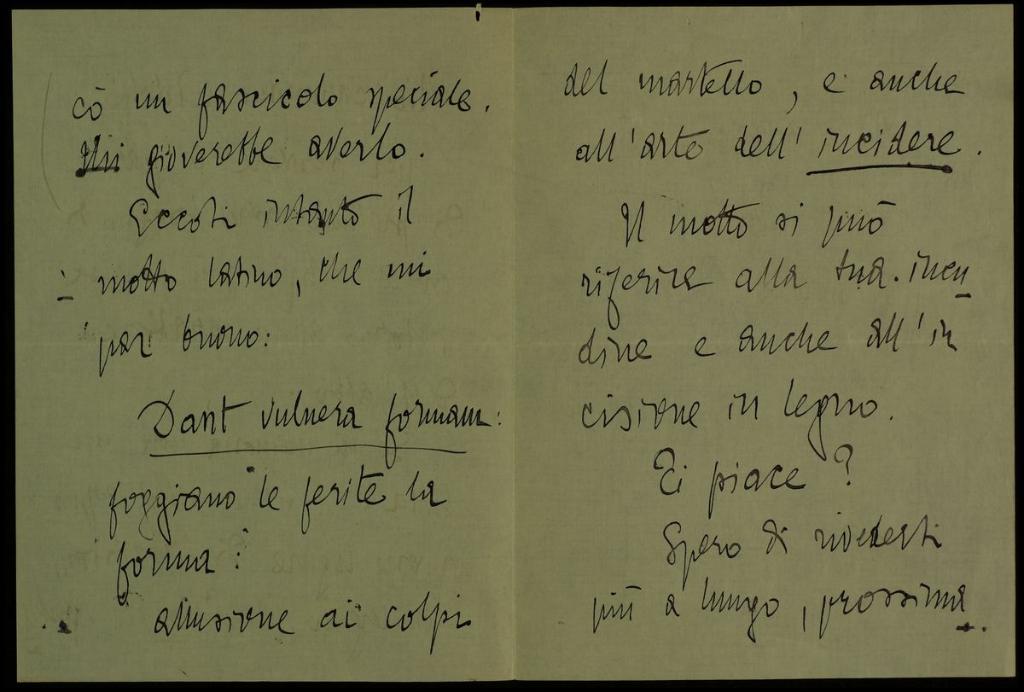 cò un fascicolo speciale.
Mi gioverebbe averlo.
Eccoti intanto il
motto latino, che mi
par buono:
Dant vulnera formam:
foggiano le ferite la
forma:
allusione ai colpi
del martello, e anche
all'arte dell'incidere.
Il motto si può
riferire alla tua incu
dine e anche all'in
cisione in legno.
Ti piace?
Spero di rivederti
più a lungo, prossima